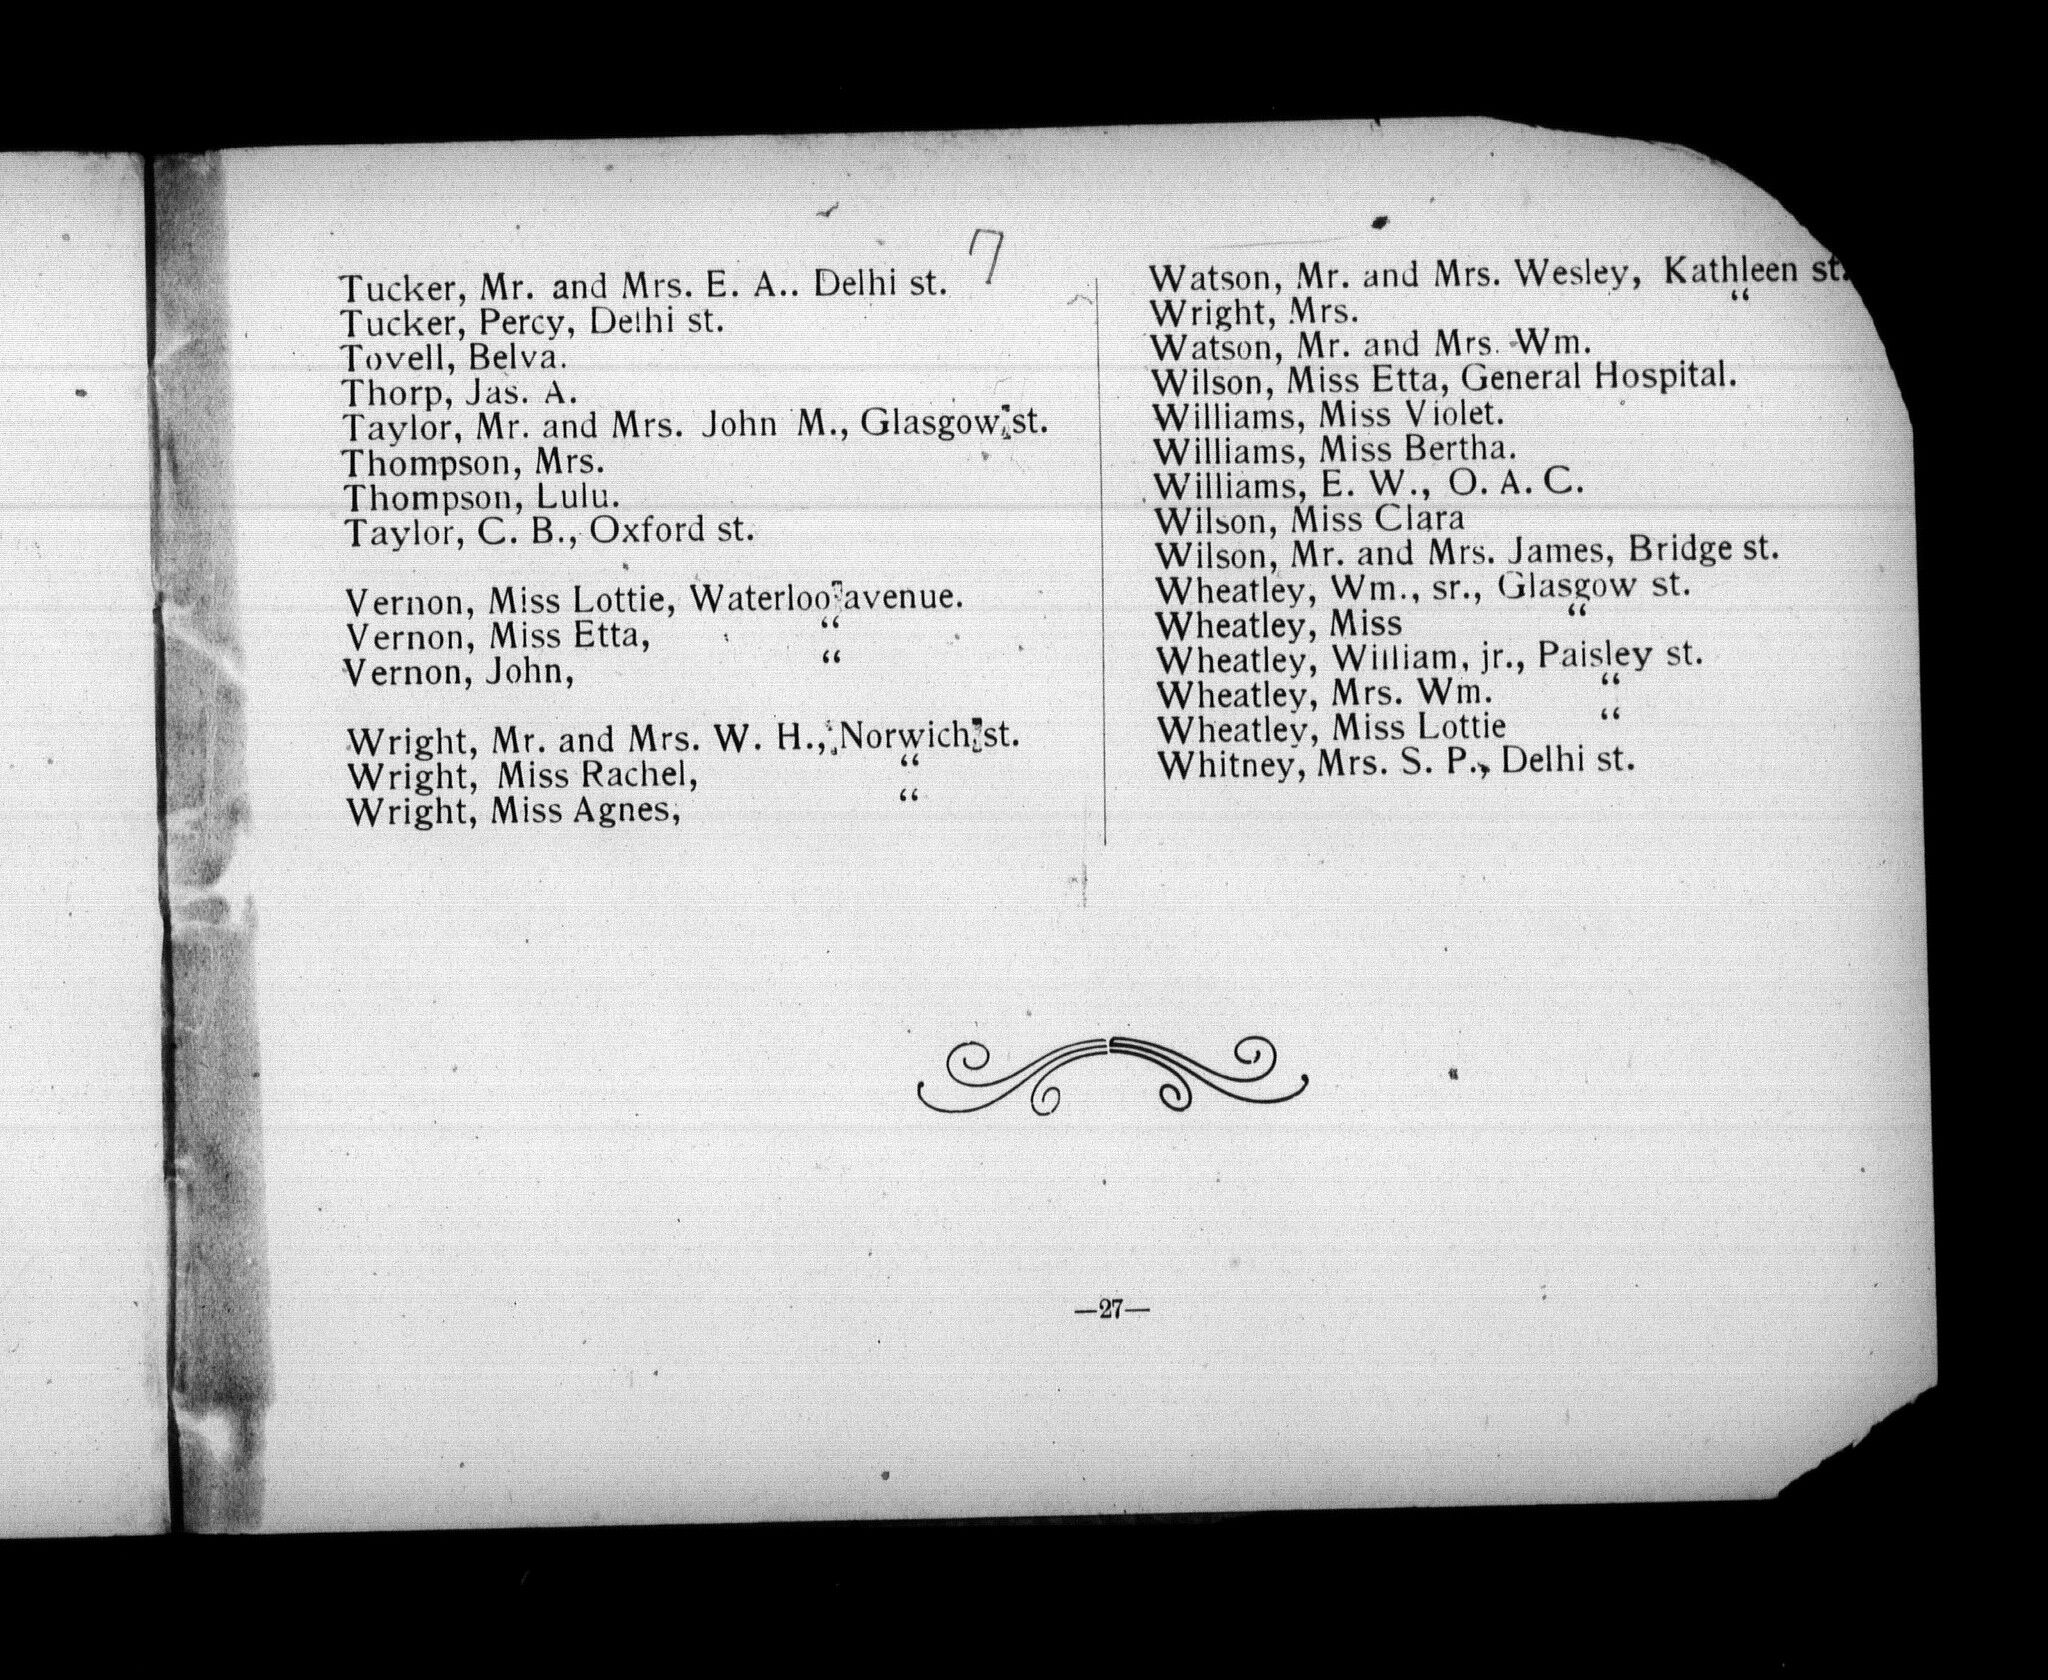 7
Tucker, Mr. and Mrs. E. A.. Delhi st.
Tucker, Percy, Delhi st.
Tovell, Belva.
Thorp, Jas. A.
Taylor, Mr. and Mrs. John M., Glasgow st.
Thompson, Mrs.
Thompson, Lulu.
Taylor, C. B., Oxford st.
Vernon, Miss Lottie, Waterloo avenue.
Vernon, Miss Etta, “
Vernon, John, “
Wright, Mr. and Mrs. W. H., Norwich st.
Wright, Miss Rachel, “
Wright, Miss Agnes, “
Watson, Mr. and Mrs. Wesley, Kathleen st.
Wright, Mrs. “
Watson, Mr. and Mrs. Wm.
Wilson, Miss Etta, General Hospital.
Williams, Miss Violet.
Williams, Miss Bertha.
Williams, E. W., O. A. C.
Wilson, Miss Clara
Wilson, Mr. and Mrs. James, Bridge st.
Wheatley, Wm., sr., Glasgow st.
Wheatley, Miss “
Wheatley, William, jr., Paisley st.
Wheatley, Mrs. Wm. “
Wheatley, Miss Lottie “
Whitney, Mrs. S. P., Delhi st.
—27—